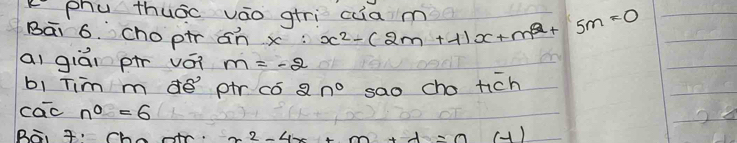 phụ thuộc vào gtrị của m
Bài 6: Cho ptr ẩn x: x² - (2m + 1)x + m² + 5m = 0
a) giải ptr với m = -2
b) Tìm m để ptr có 2 n⁰ sao cho tích
các n⁰ = 6
Bài 7: Cho ptr: x² - 4x + m + 1 = 0 (1)